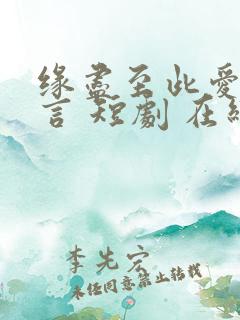 缘盡至此愛
言 短劇 在線
李先宏
未经同意禁止转载